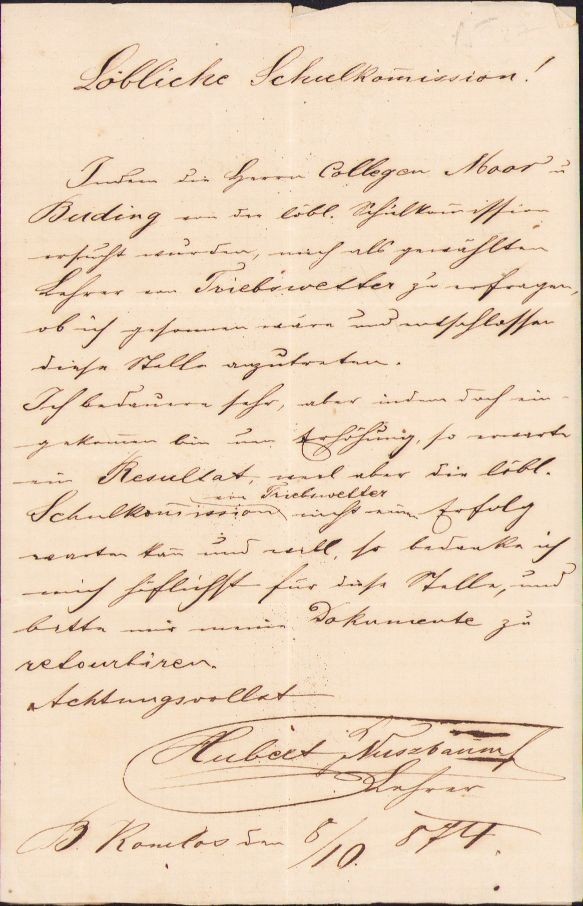 Löbliche Schulkommission!
Indem die Herrn Collegen Moor u
Buding von der löbl. Schulkommission
ersucht wurden, mich als gewählten
Lehrer von Triebswetter zu erfragen,
ob ich gesonnen wäre und entschlossen
diese Stelle anzutreten.
Ich bedauere sehr, aber indem doch ein-
gekommen bin um Erhöhung, so erwarte
ein Resultat, weil aber die löbl.
von Triebswetter
Schulkommission nicht einen Erfolg
warten kann und will, so bedanke ich
mich höflichst für diese Stelle, und
bitte mir meine Dokumente zu
retourüren.
Achtungsvollst
Hubert Nuszbaum
Lehrer
B. Komlos den 8/10. 874.